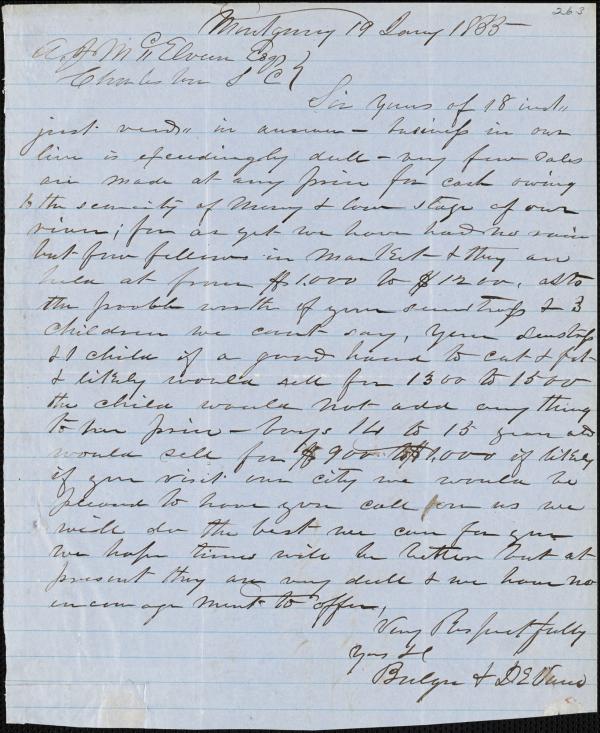 263
Montgomery 19 Jany 1855
A. J. McElveen Esqr
Charleston S C
Sir Yours of 18 inst
just recd in answer - business in our
line is exceedingly dull - very few sales
are made at any price for cash owing
to the scarcity of Money & low stage of our
river; for as yet we have had no rain
but few fellows in Market & they are
held at from $1.000 to $1200, as to
the probble worth of your seamstress & 3
children we cant say, Your seamstress
& 1 child if a good hand to cut & fit
& likely would sell for 1300 to 1500
the child would not add any thing
to her price - boys 14 to 15 years old
would sell for $900 to $1.000 if likely
if you visit our city we would be
pleased to have you call on us we
will do the best we can for you
we hope times will be better but at
present they are very dull & we have no
encouragement to offer,
Very Respectfully
Yours &c
& D